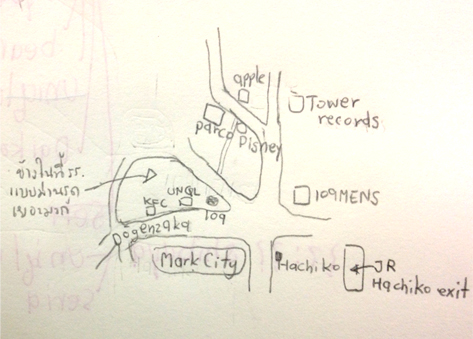 apple
Tower
records
parco
Disney
ข้างในนี้รร.
แบบม่านรูด
เยอะมาก
UNQL
KFC
109
109MENS
Dogenzaka
Mark City
Hachiko
JR
Hachiko exit